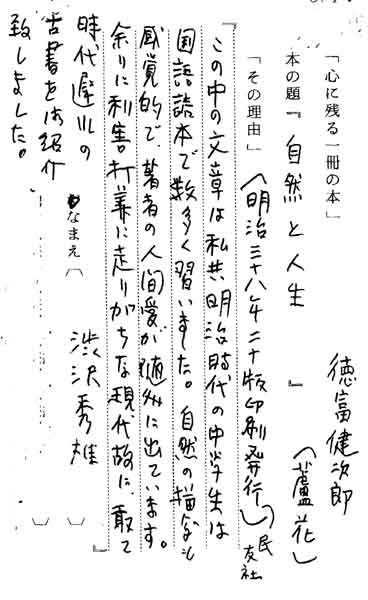 「心に残る一冊の本」
本の題『自然と人生』 徳富健次郎(蘆花)
「その理由」(明治三十八年二十版印刷発行)民友社
『この中の文章は私共明治時代の中学生は
国語読本で数多く習いました。自然の描写も
感覚的で、著者の人間愛が随所に出ています。
余りに利害打算に走りがちな現代故に、敢て
時代遅れの
古書を御紹介
致しました。』
なまえ〔 渋沢秀雄 〕